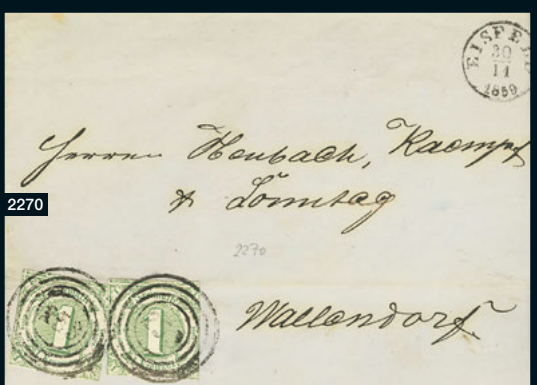 EISFELD
30
11
1859
Herren Heubach, Kaempf
& Sonntag
2270
2270
Wallendorf
1 1